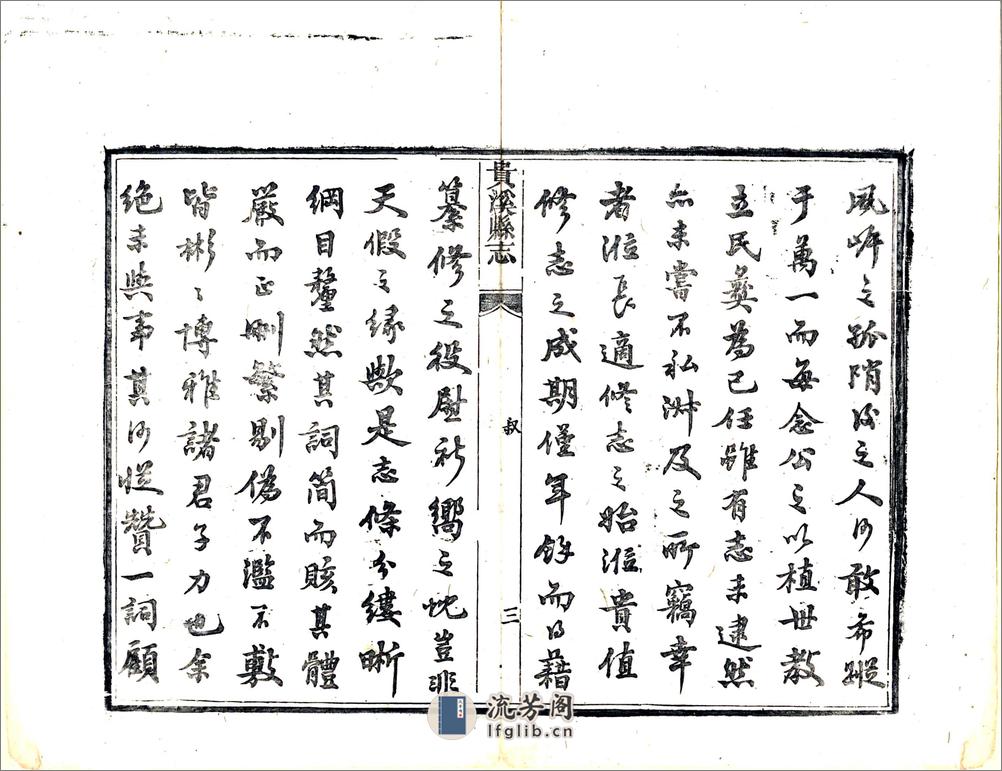 風岸之孤陗後之人何敢希蹤
于萬一而每念公之以植世教
立民彝為己任雖有志未逮然
亦未嘗不私淑及之所竊幸
者涖長適修志之始涖貴值
修志之成期僅年餘而得藉
貴溪縣志
敘
三
纂修之役慰祈嚮之忱豈非
天假之緣歟是志條分縷晰
綱目釐然其詞簡而賅其體
嚴而正刪繁剔偽不濫不敷
皆彬〻博雅諸君子力也余
絕未與事其何從贊一詞顧
流芳阁
lfglib.cn